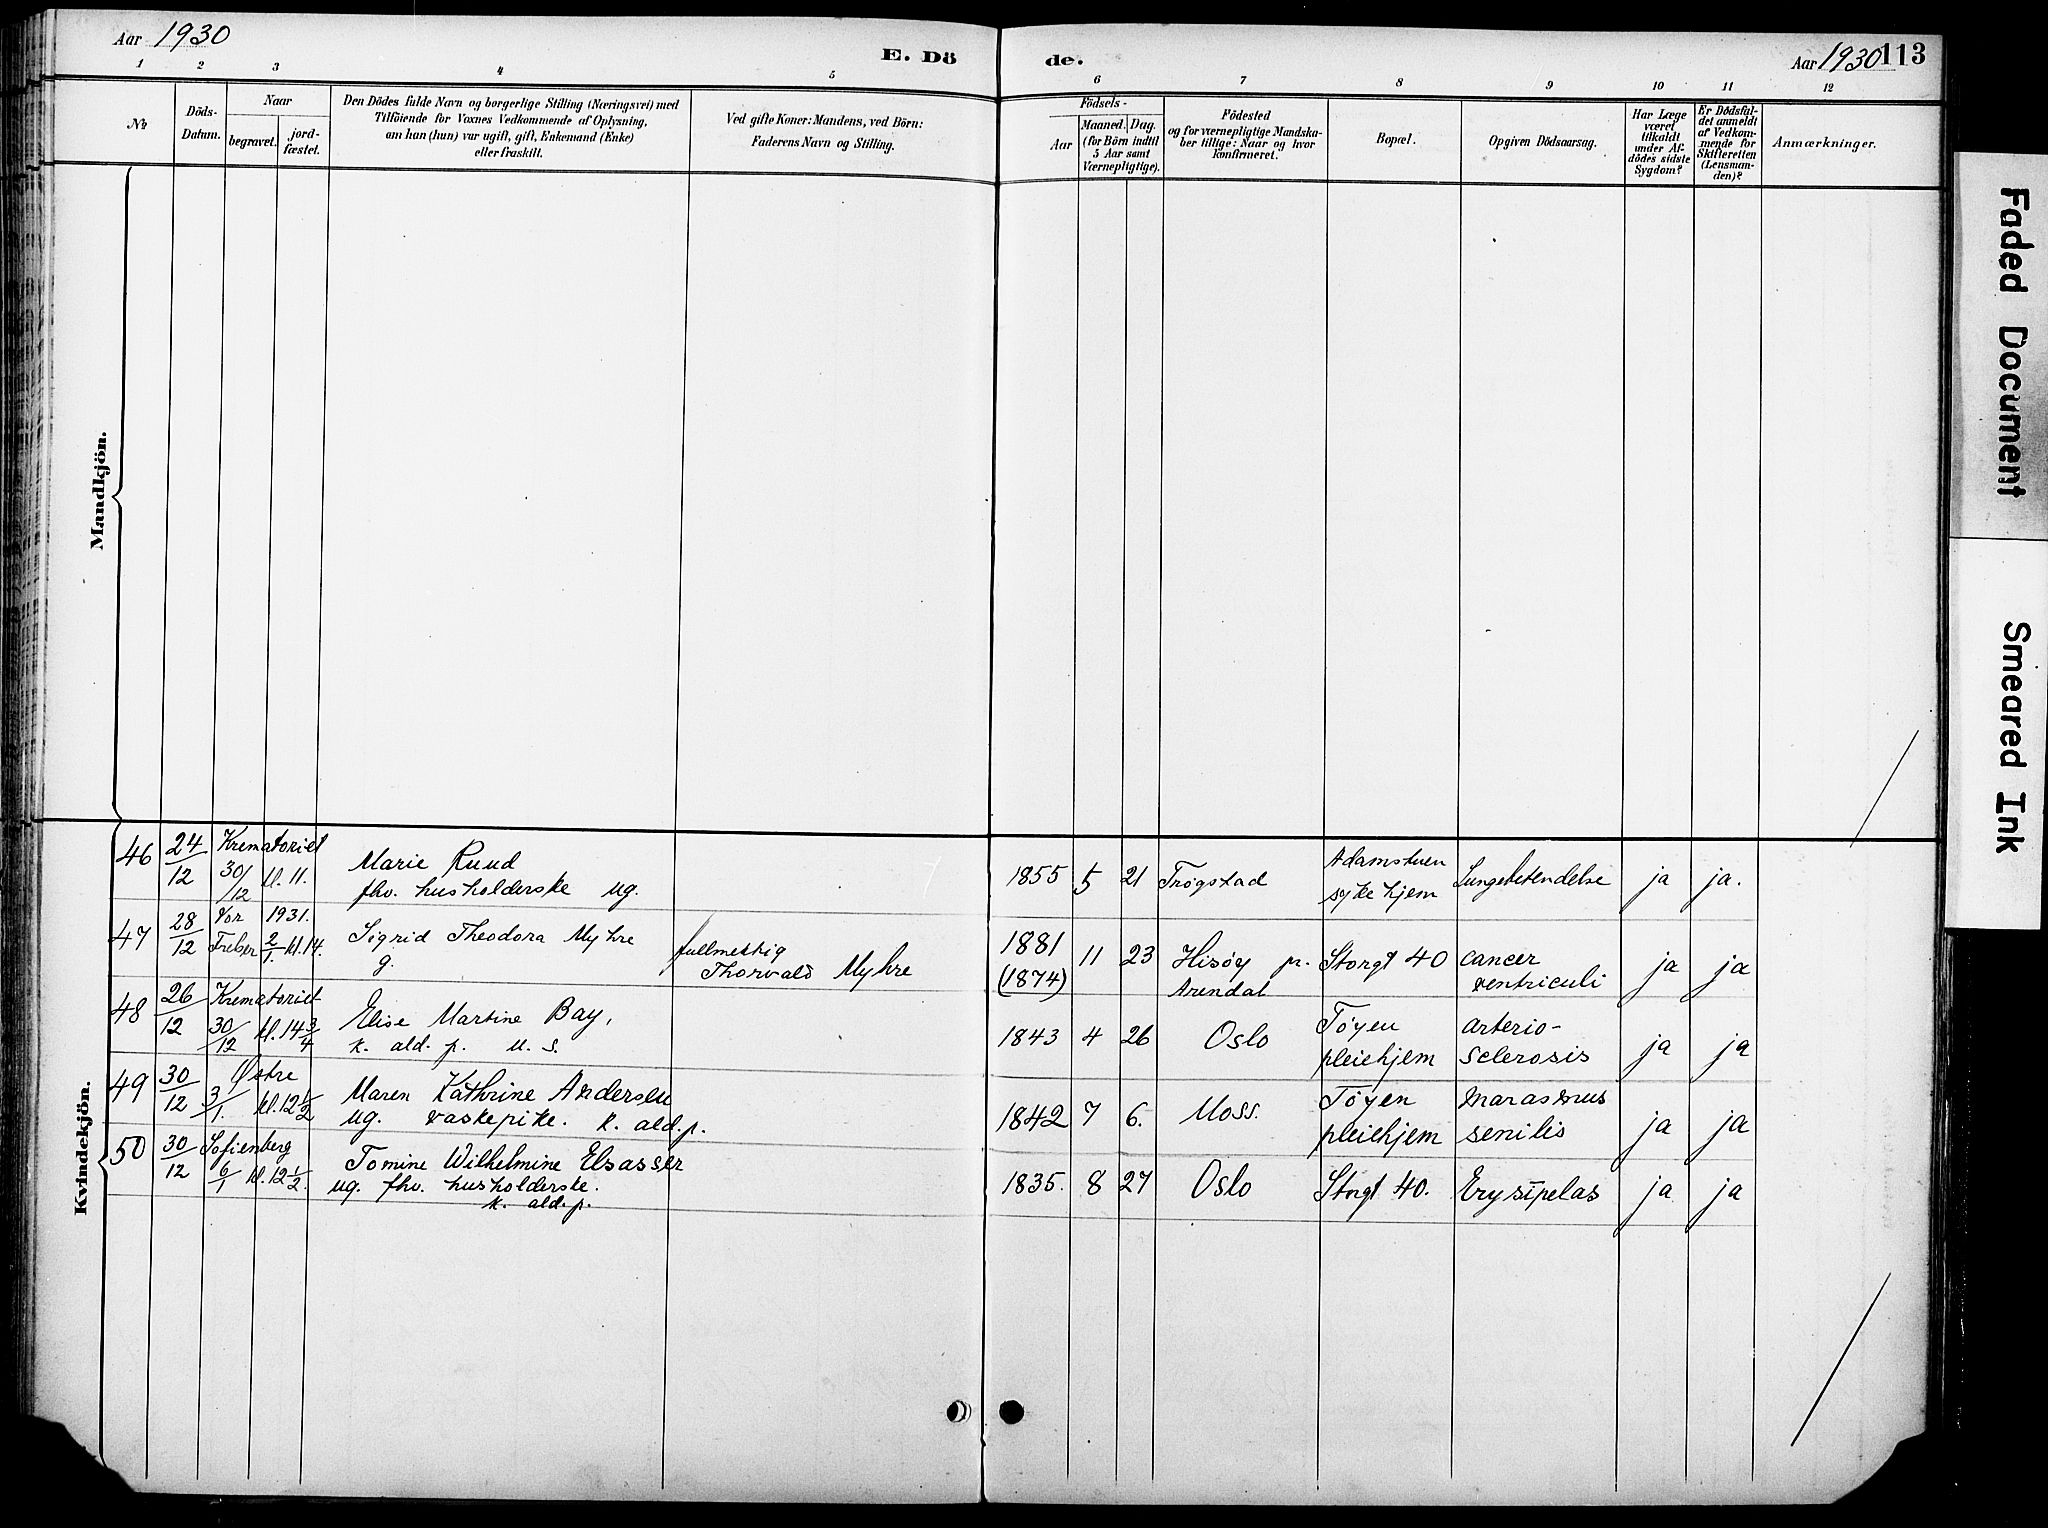 Aar 1930
E. Dö
de.
Aar 1930 113
1 2 3 4 5 6 7 8 9 10 11 12
No
Döds-
Datum.
Naar
begravet.
jord-
fæstet.
Den Dödes fulde Navn og borgerlige Stilling (Næringsvei) med
Tilföiende for Voxnes Vedkommende af Oplysning,
om han (hun) var ugift, gift, Enkemand (Enke)
eller fraskilt.
Ved gifte Koner: Mandens, ved Börn:
Faderens Navn og Stilling.
Födsels-
Aar
Maaned. Dag.
(for Börn indtil
5 Aar samt
Værnepligtige).
Födested
og for værnepligtige Mandska-
ber tillige: Naar og hvor
konfirmeret.
Bopæl.
Opgiven Dödsaarsag.
Har Læge
været
tilkaldt
under Af-
dödes sidste
Sygdom?
Er Dödsfal-
det anmeldt
af Vedkom-
mende for
Skifteretten
(Lensman-
den)?
Anmærkninger.
Mandkjön.
Kvindekjön.
46 24/12 Krematoriet
30/12 kl. 11.
Marie Ruud
fhv. husholderske ug.
1855 5 21 Trøgstad
Adamstuen
sykehjem
Lungebetendelse
ja ja.
47 28/12 Vor
Frelser
1931.
2/1 kl. 14.
Sigrid Theodora Myhre
g.
fullmektig
Thorvald Myhre
1881
(1874)
11 23 Hisøy pr.
Arendal
Storgt 40
cancer
ventriculi
ja ja
48 26/12 Krematoriet
30/12 kl. 14 3/4
Elise Martine Bay,
k. ald. p. u. s.
1843 4 26 Oslo
Tøyen
pleiehjem
arterio-
sclerosis
ja ja
49 30/12 Østre
3/1 kl. 12 1/2
Maren Kathrine Andersen
ug. vaskepike. k. ald. p.
1842 7 6. Moss.
Tøyen
pleiehjem
marasmus
senilis
ja ja
50 30/12 Sofienberg
6/1 kl. 12 1/2.
Tomine Wilhelmine Elsasser
ug. fhv. husholderske.
k. ald. p.
1835. 8 27 Oslo Storgt 40. Erysipelas ja ja
Faded Document
Smeared Ink